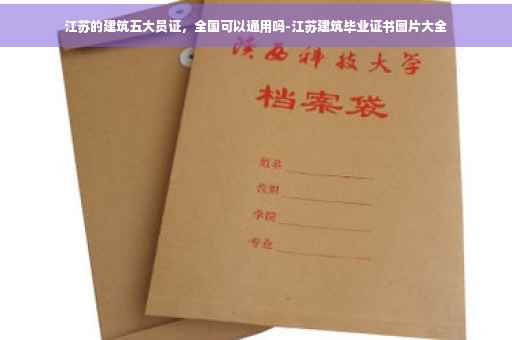 江苏的建筑五大员证，全国可以通用吗-江苏建筑毕业证书图片大全
陕西科技大学
档案袋
姓名
学院
专业